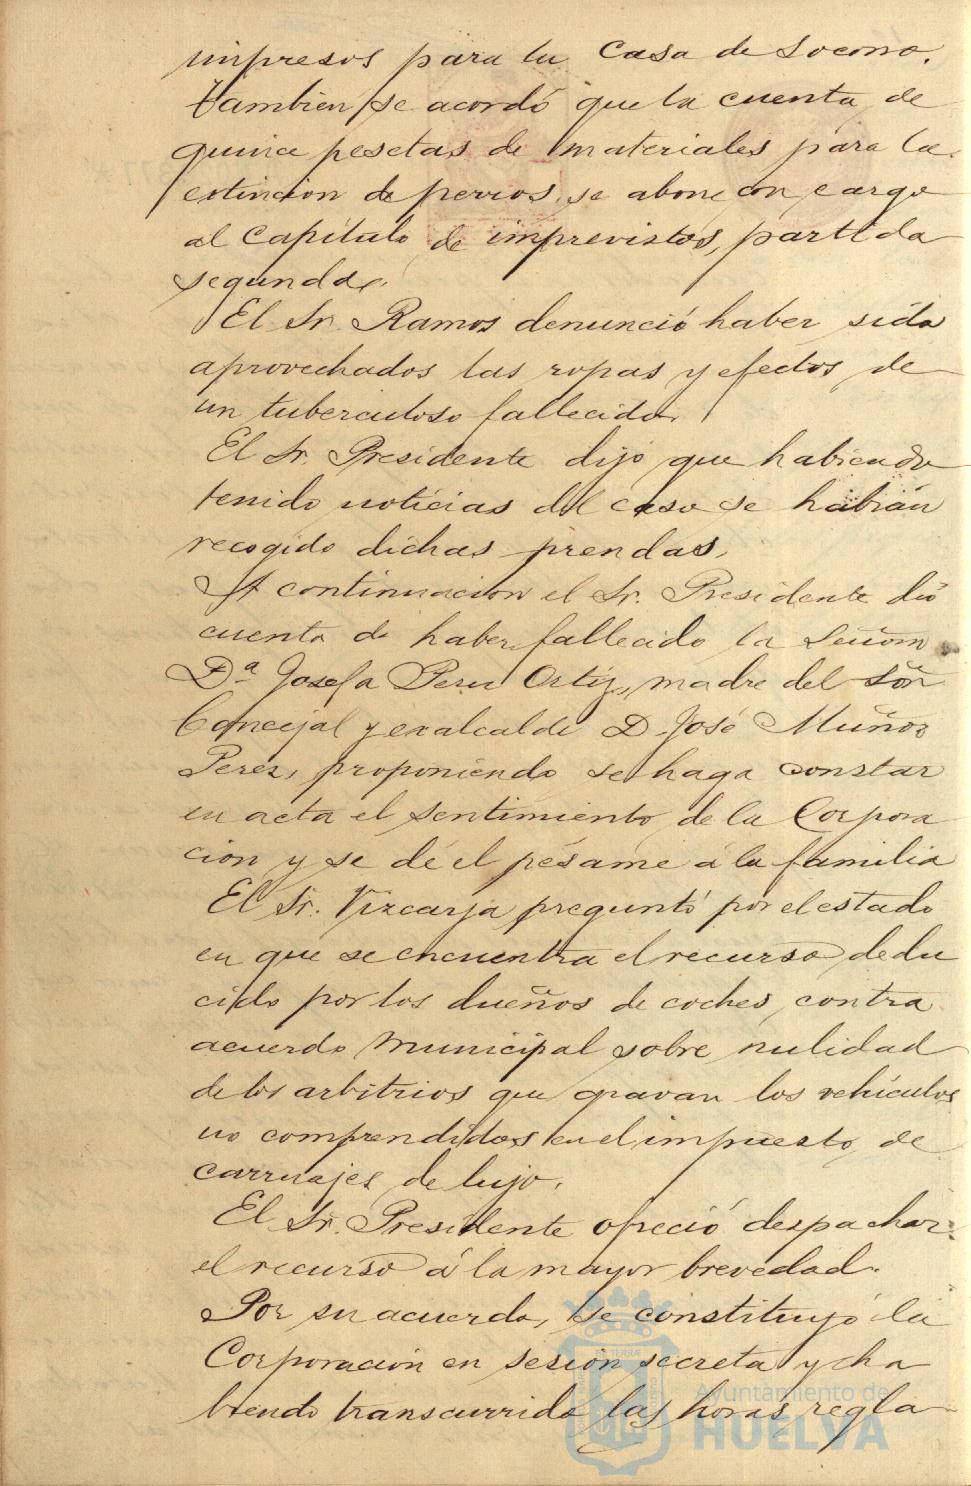 impresos para la Casa de Socorro.
tambien se acordó que la cuenta de
quince pesetas de materiales para la
extincion de perros se abone con cargo
al Capítulo de imprevistos, partida
segunda.
El Sr. Ramos denunció haber sido
aprovechados las ropas y efectos de
un tuberculoso fallecido.
El Sr. Presidente dijo que habiendo
tenido noticias del caso se habían
recogido dichas prendas.
A continuacion el Sr. Presidente dió
cuenta de haber fallecido la Señora
Dª Josefa Perez Ortiz, madre del Sōr
Concejal y exalcalde D. José Muñoz
Perez, proponiendo se haga constar
en acta el sentimiento de la Corpora
cion y se dé el pésame á la familia
El Sr. Vizcarja preguntó por el estado
en que se encuentra el recurso dedu
cido por los dueños de coches, contra
acuerdo Municipal sobre nulidad
de los arbitrios que gravan los vehículos
no comprendidos en el impuesto de
carruajes de lujo.
El Sr. Presidente ofreció despachar
el recurso á la mayor brevedad.
Por su acuerdo, se constituyó la
Corporación en sesión secreta y ha
biendo transcurrido las horas regla
Ayuntamiento de
HUELVA